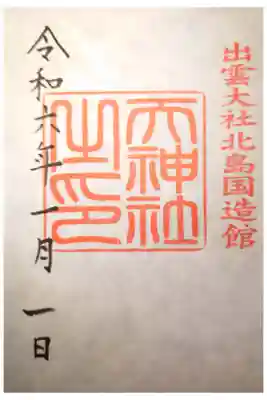 出雲大社北島国造館
天神社
之印
令和六年一月一日